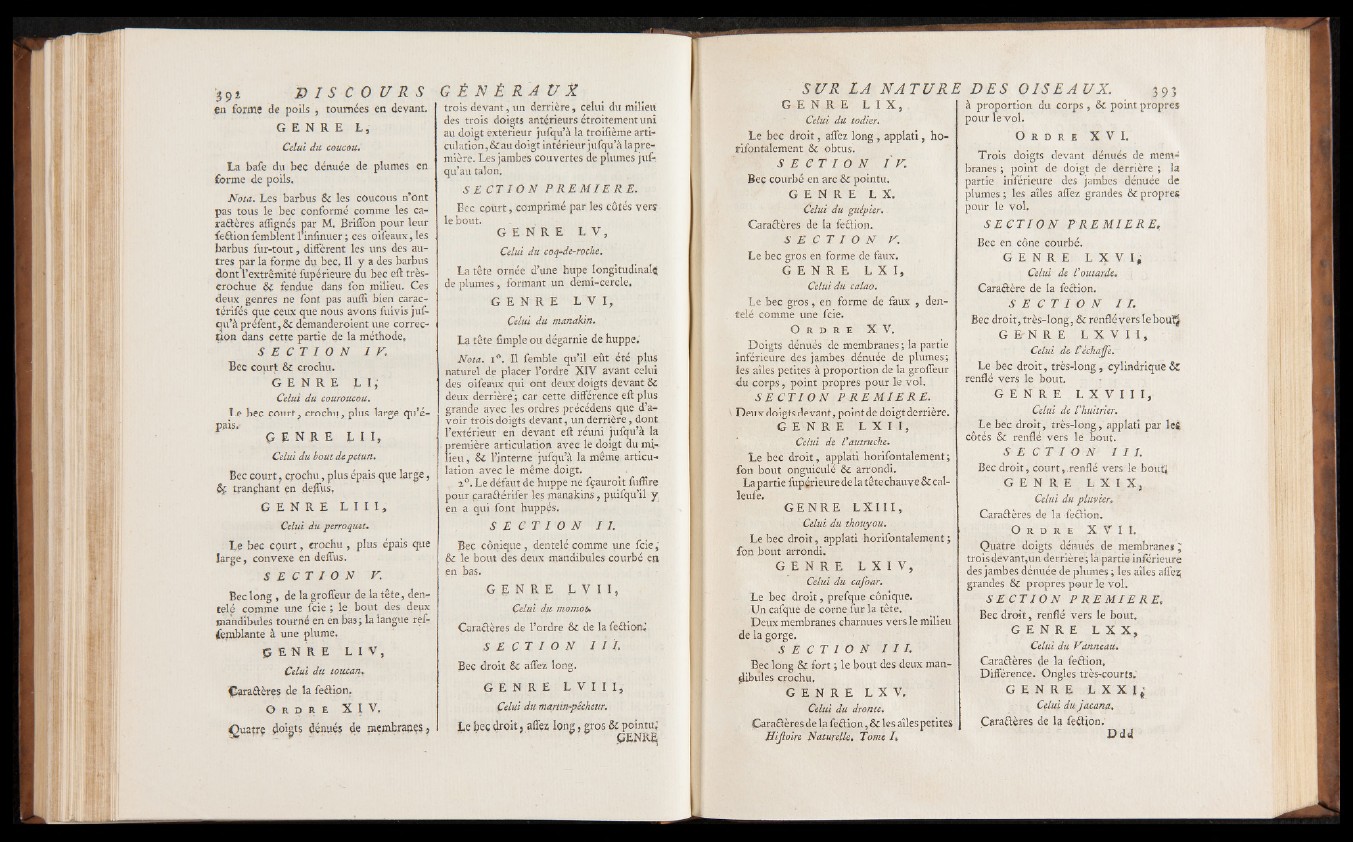 392 DISCOURS GÉNÉRAUX
en forme de poils , tournées en devant.
GENRE L,
Celui du coucou.
La baſe du bec dénuée de plumes en
forme de poils.
Nota. Les barbus & les coucous n'ont
pas tous le bec conformé comme les ca-
ractères aſſignés par M. Briſſon pour leur
ſection ſemblent l'inſinuer ; ces oiſeaux, les
barbus ſur-tout, diffèrent les uns des au-
tres par la forme du bec. Il y a des barbus
dont l'extrêmité ſupérieure du bec eſt très-
crochue & fendue dans ſon milieu. Ces
deux genres ne ſont pas auſſi bien carac-
tériſés que ceux que nous avons ſuivis juſ-
qu'à préſent, & demanderoient une correc-
tion dans cette partie de la méthode.
SECTION IV.
Bec court & crochu.
GENRE LI,
Celui du couroucou.
Le bec court, crochu, plus large qu'é-
pais.
GENRE LII,
Celui du bout de petun.
Bec court, crochu, plus épais que large,
& tranchant en deſſus.
GENRE LIII,
Celui du perroquet.
Le bec court, crochu, plus épais que
large, convexe en deſſus.
SECTION V.
Bec long, de la groſſeur de la tête, den-
telé comme une ſcie ; le bout des deux
mandibules tourné en en bas ; la langue reſ-
ſemblante à une plume.
GENRE LIV,
Celui du toucan.
Caractères de la ſection.
ORDRE XIV.
Quatre doigts dénués de membranes,
trois devant, un derrière, celui du milieu
des trois doigts antérieurs étroitement uni
au doigt exterieur juſqu'à la troiſième arti-
culation, & au doigt intérieur juſqu'à la pre-
mière. Les jambes couvertes de plumes juſ-
qu'au talon.
SECTION PREMIERE.
Bec court, comprimé par les côtés vers
le bout.
GENRE LV,
Celui du coq-de-roche.
La tête ornée d'une hupe longitudinale
de plumes, formant un demi-cercle.
GENRE LVI,
Celui du manakin.
La tête ſimple ou dégarnie de huppe.
Nota. 1°. Il ſemble qu'il eût été plus
naturel de placer l'ordre XIV avant celui
des oiſeaux qui ont deux doigts devant &
deux derrière ; car cette différence eſt plus
grande avec les ordres précédens que d'a-
voir trois doigts devant, un derrière, dont
l'extérieur en devant eſt réuni juſqu'à la
première articulation avec le doigt du mi-
lieu, & l'interne juſqu'à la même articu-
lation avec le même doigt.
2°. Le défaut de huppe ne ſçauroit ſuffire
pour caractériſer les manakins, puiſqu'il y
en a qui ſont huppés.
SECTION II.
Bec cônique, dentelé comme une ſcie,
& le bout des deux mandibules courbé en
en bas.
GENRE LVII,
Celui du momot.
Caractères de l'ordre & de la ſection.
SECTION III.
Bec droit & aſſez long.
GENRE LVIII,
Celui du martin-pêcheur.
Le bec droit, aſſez long, gros & pointu.
GENRE
SUR LA NATURE DES OISEAUX. 393
GENRE LIX,
Celui du todier.
Le bec droit, aſſez long, applati, ho-
riſontalement & obtus.
SECTION IV.
Bec courbé en arc & pointu.
GENRE LX.
Celui du guépier.
Caractères de la ſection.
SECTION V.
Le bec gros en forme de faux.
GENRE LXI,
Celui du calao.
Le bec gros, en forme de faux, den-
telé comme une ſcie.
ORDRE XV.
Doigts dénués de membranes ; la partie
inférieure des jambes dénuée de plumes ;
les aîles petites à proportion de la groſſeur
du corps, point propres pour le vol.
SECTION PREMIERE.
Deux doigts devant, point de doigt derrière.
GENRE LXII,
Celui de l'autruche.
Le bec droit, applati horiſontalement ;
ſon bout onguiculé & arrondi.
La partie ſupérieure de la tête chauve & cal-
leuſe.
GENRE LXIII,
Celui du thouyou.
Le bec droit, applati horiſontalement ;
ſon bout arrondi.
GENRE LXIV,
Celui du caſoar.
Le bec droit, preſque cônique.
Un caſque de corne ſur la tête.
Deux membranes charnues vers le milieu
de la gorge.
SECTION III.
Bec long & fort ; le bout des deux man-
dibules crochu.
GENRE LXV.
Celui du dronte.
Caractères de la ſection, & les aîles petites
Hiſtoire Naturelle. Tome I.
à proportion du corps, & point propres
pour le vol.
ORDRE XVI.
Trois doigts devant dénués de mem-
branes ; point de doigt de derrière ; la
partie inférieure des jambes dénuée de
plumes ; les aîles aſſez grandes & propres
pour le vol.
SECTION PREMIERE.
Bec en cône courbé.
GENRE LXVI,
Celui de l'outarde.
Caractère de la ſection.
SECTION II.
Bec droit, très-long, & renflé vers le bout.
GENRE LXVII,
Celui de l'échaſſe.
Le bec droit, très-long, cylindrique &
renflé vers le bout.
GENRE LXVIII,
Celui de l'huitrier.
Le bec droit, très-long, applati par les
côtés & renflé vers le bout.
SECTION III.
Bec droit, court, renflé vers le bout.
GENRE LXIX,
Celui du pluvier.
Caractères de la ſection.
ORDRE XVII.
Quatre doigts dénués de membranes ;
trois devant, un derrière ; la partie inférieure
des jambes dénuée de plumes ; les aîles aſſez
grandes & propres pour le vol.
SECTION PREMIERE.
Bec droit, renflé vers le bout.
GENRE LXX,
Celui du Vanneau.
Caractères de la ſection.
Différence. Ongles très-courts.
GENRE LXXI,
Celui du jacana.
Caractères de la ſection.
Ddd